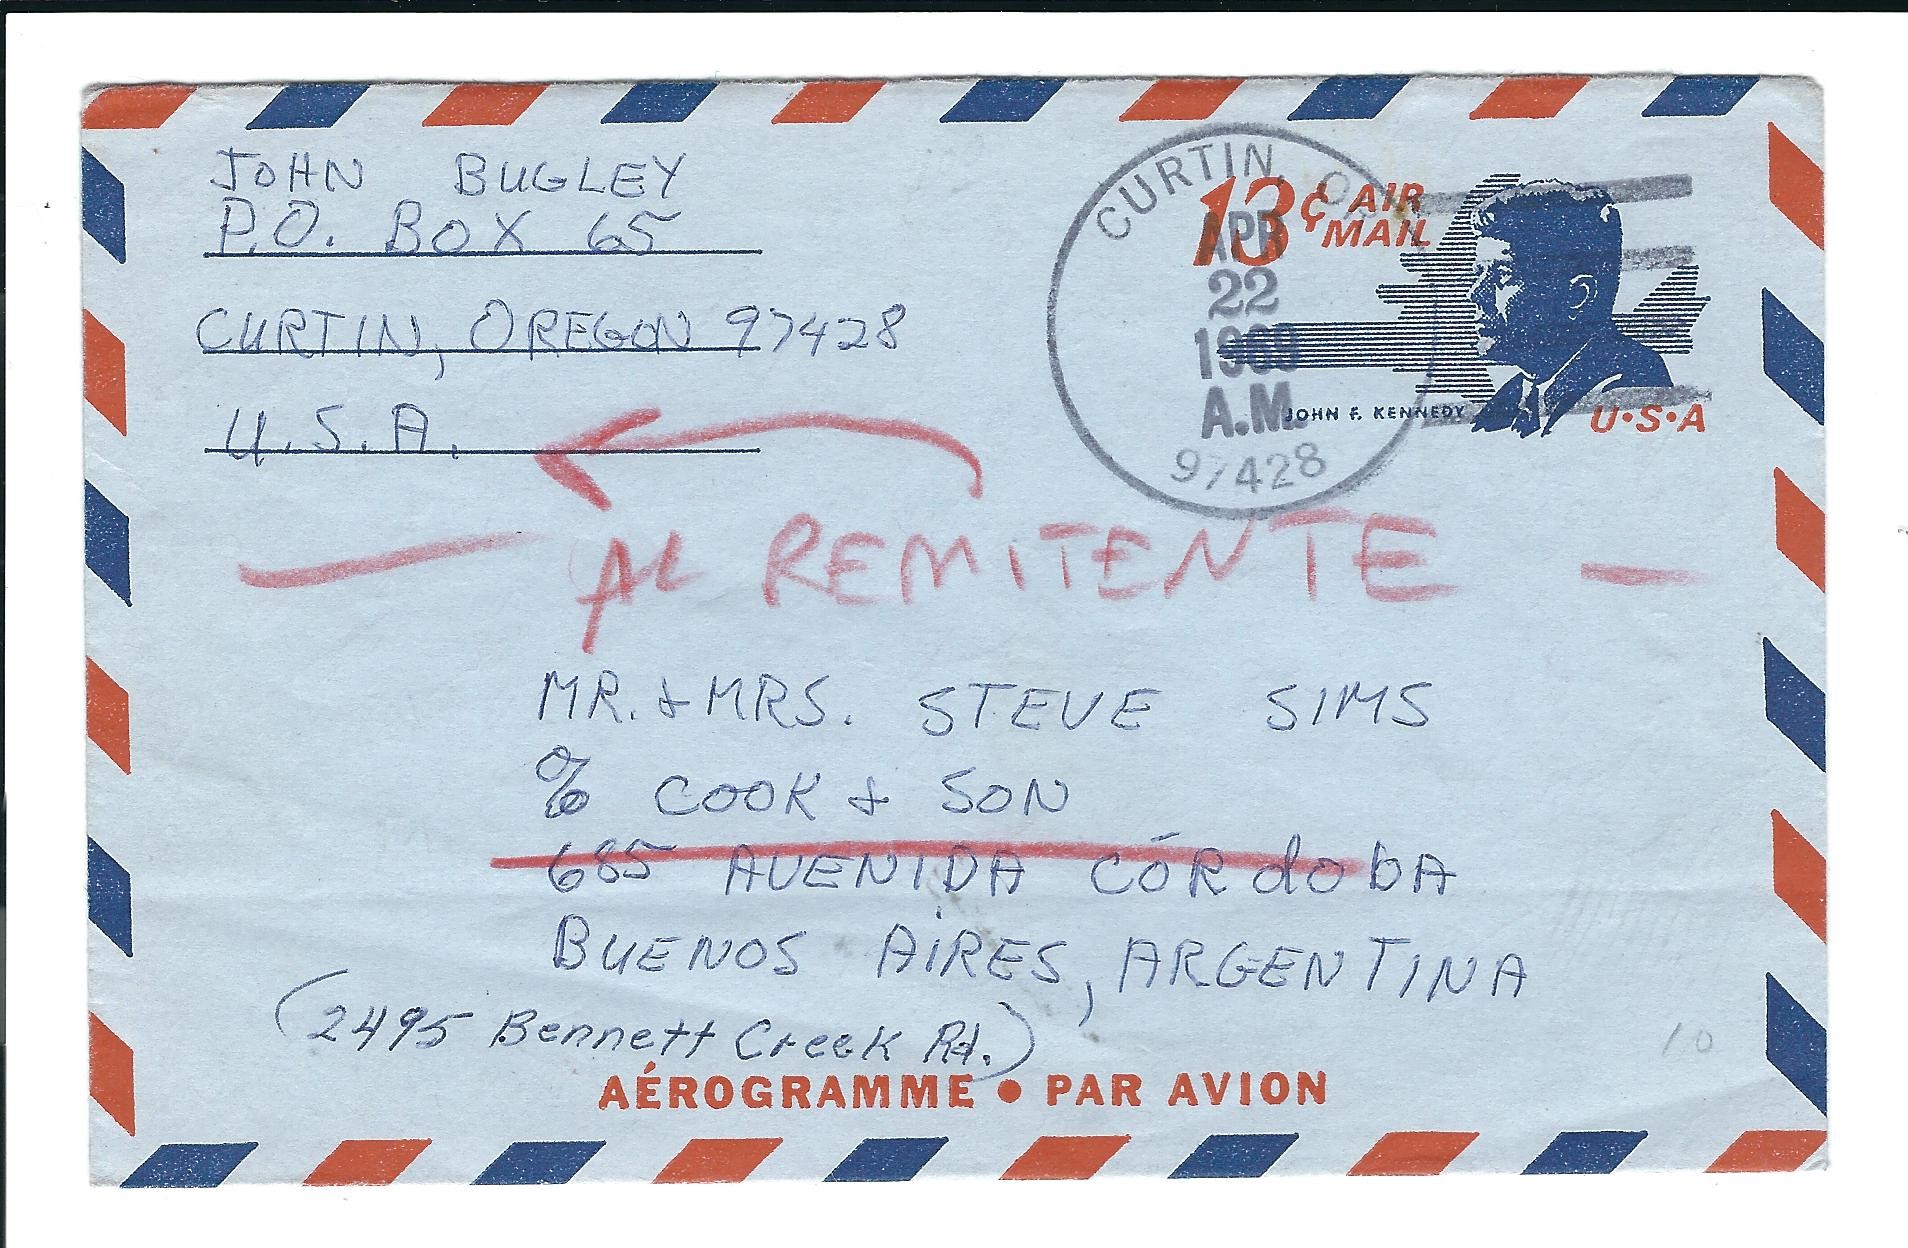 JOHN BUGLEY
P.O. BOX 65
CURTIN, OREGON 97428
U.S.A.
CURTIN, O
APR
22
1969
A.M.
97428
13¢ AIR
MAIL
JOHN F. KENNEDY
U·S·A
AL REMITENTE
MR. + MRS. STEVE SIMS
% COOK + SON
685 AVENIDA CÓRdobA
BUENOS AiRES, ARGENTINA
(2495 Bennett Creek Rd.)
AÉROGRAMME • PAR AVION
10